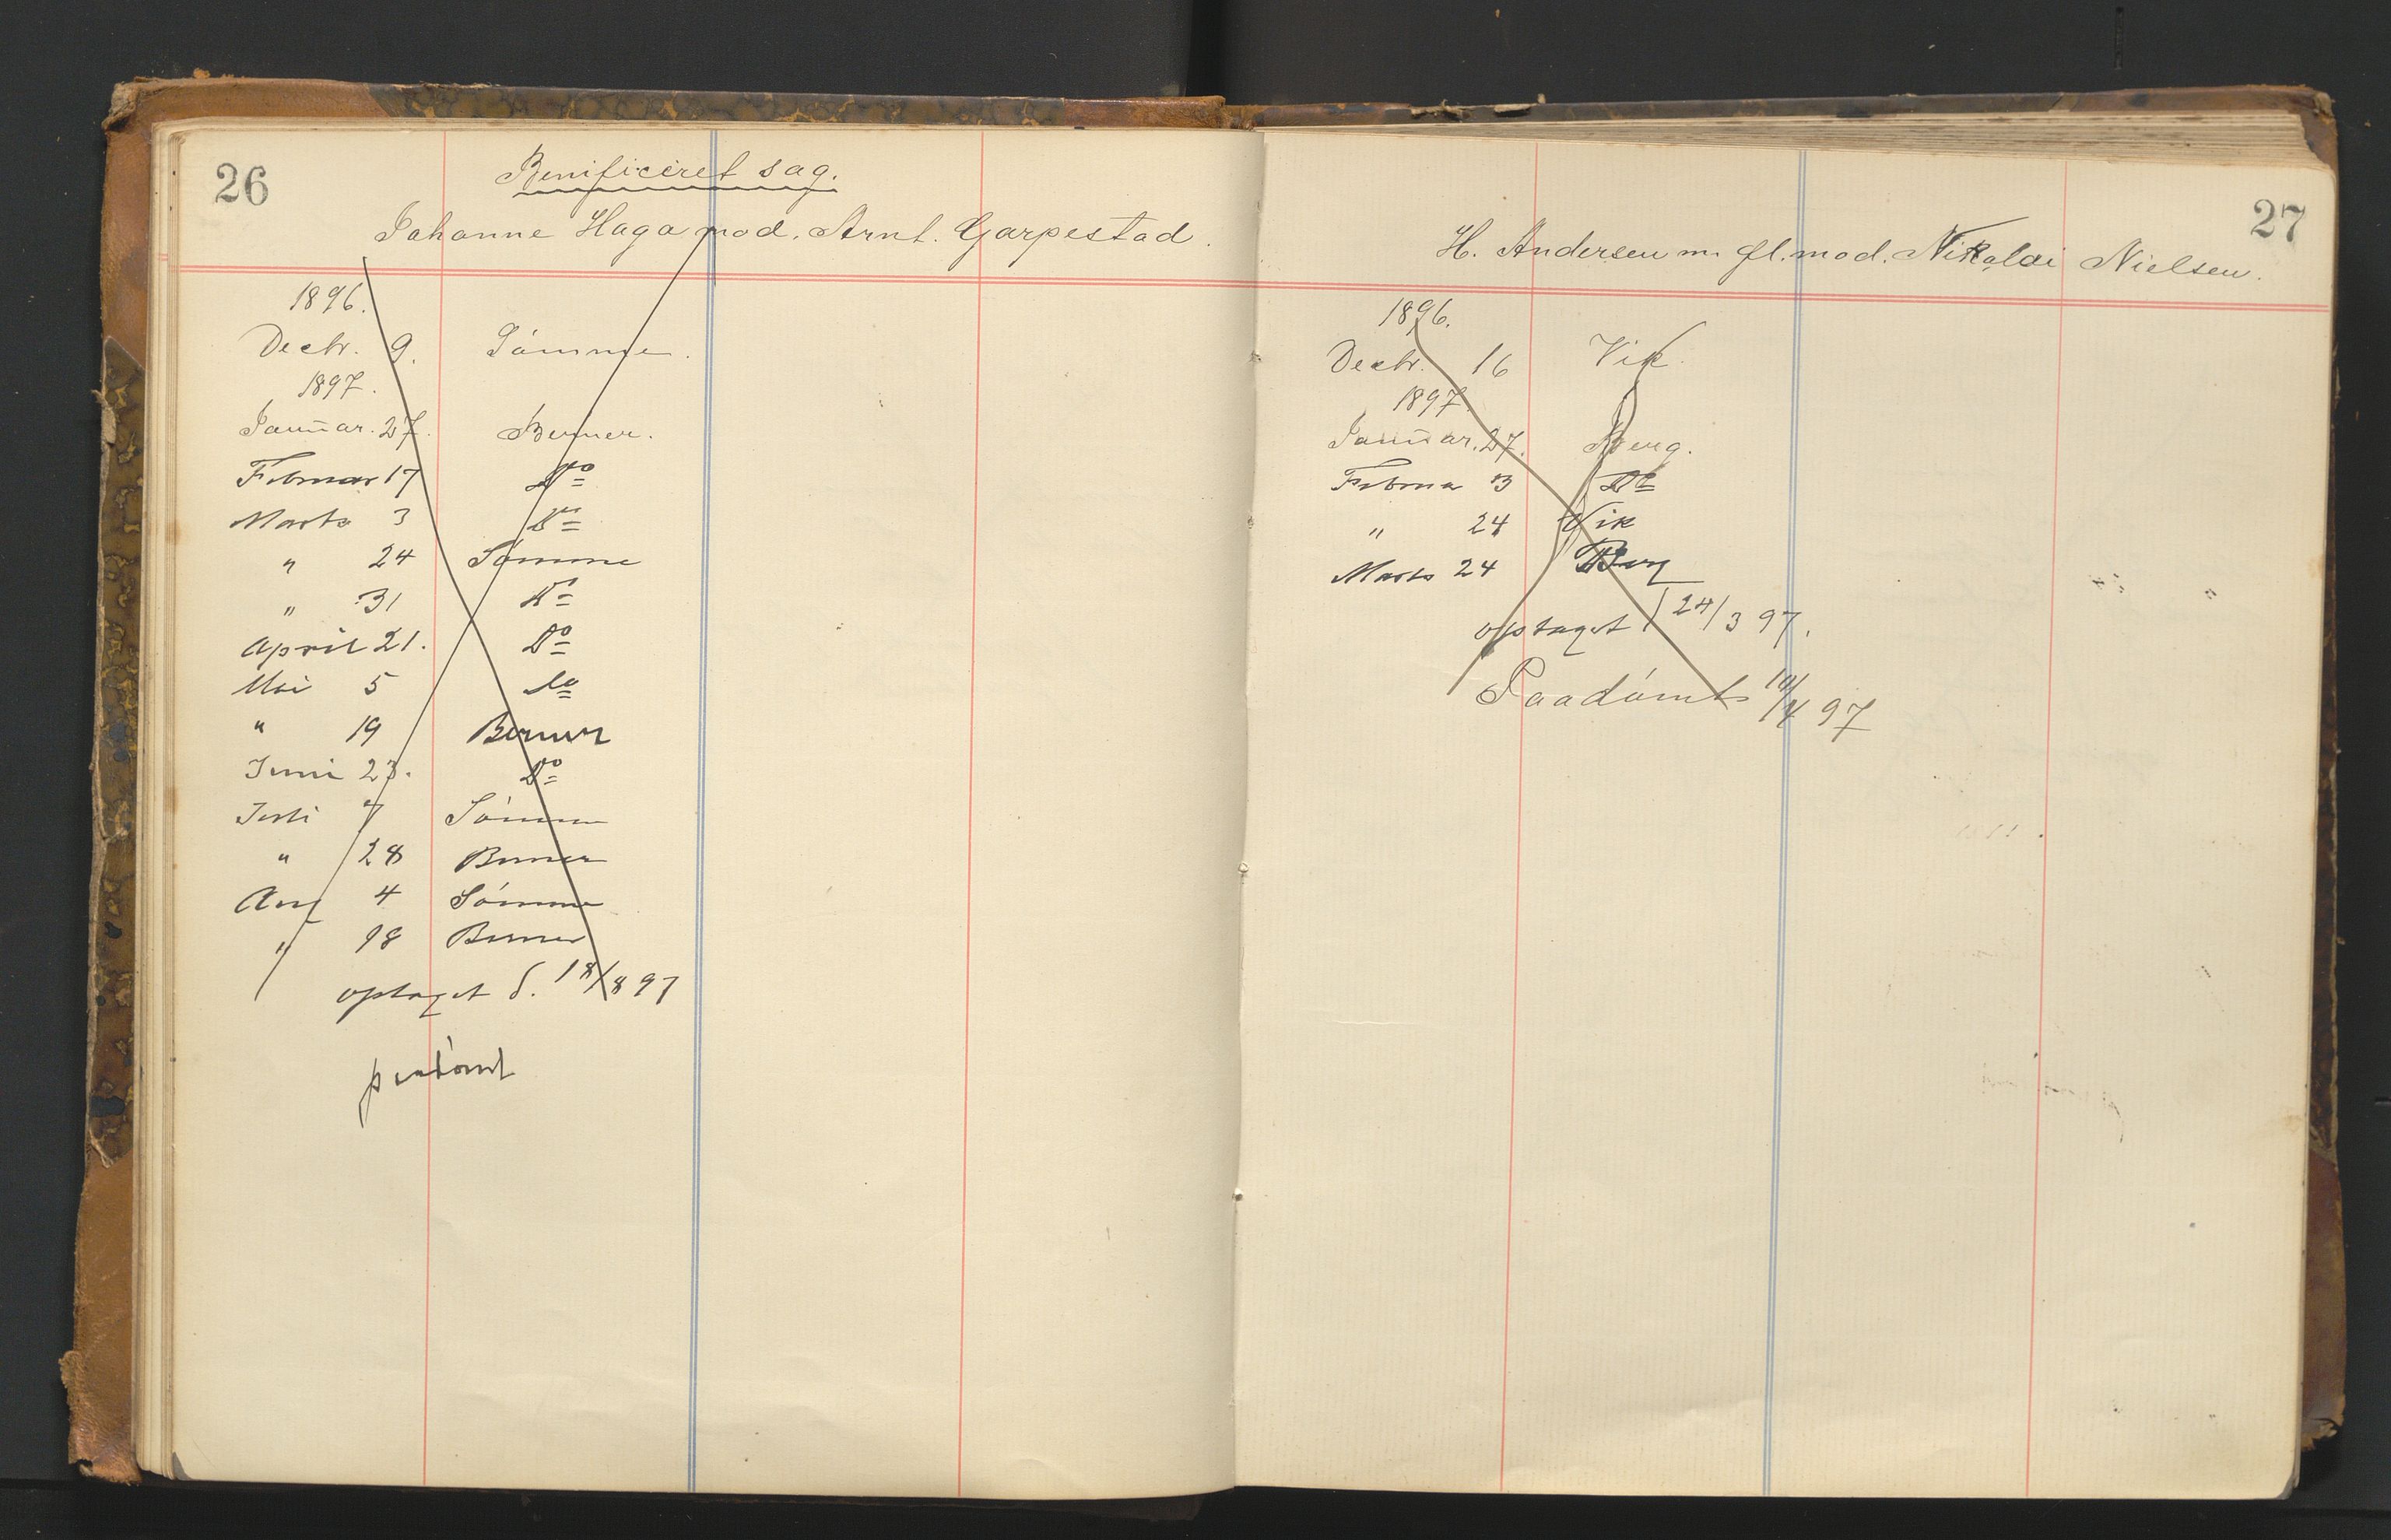 26
Benificeret sag.
Johanne Haga mod. Arnt. Garpestad.
1896.
Decbr. 9. Sómme.
1897.
Januar. 27. Berner.
Februar 17 Do
Marts 3 Do
" 24 Sómme
" 31 Do
April 21. Do
Mai 5 Do
" 19 Berner
Juni 23. Do
Juli 7 Sómme
" 28 Berner
Aug 4 Sómme
" 18 Berner
optaget d. 18/8 97
paadómt
27
H. Andersen m. fl. mod. Nikolai Nielsen.
1896.
Decbr. 16 Vik.
1897.
Januar. 27. Berg.
Februa 3 Do
" 24 Vik
Marts 24 Berg
optaget 24/3 97.
Paadómt 10/4 97